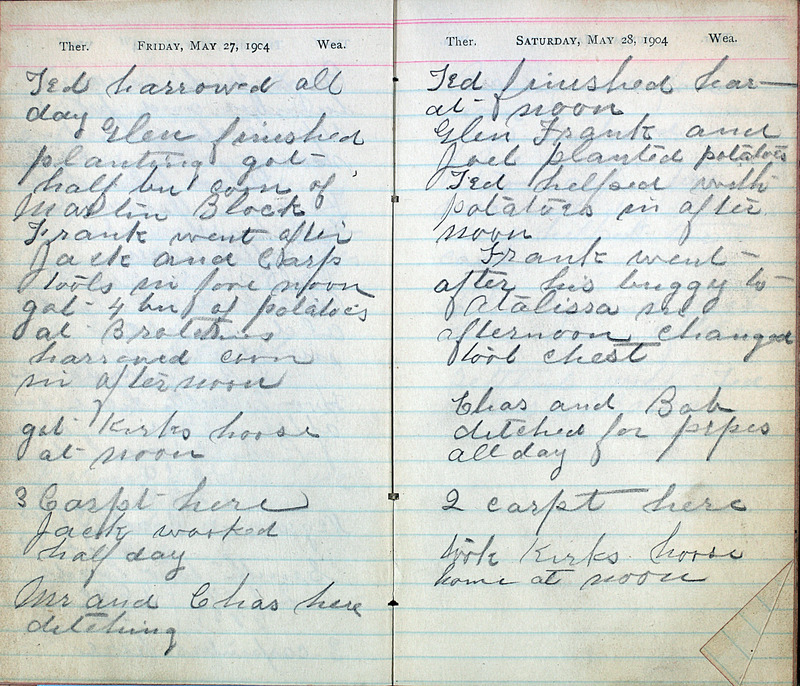 Ther. FRIDAY, MAY 27, 1904 Wea.
Ted harrowed all
day
Glen finished
planting got
half bu corn of
Martin Block
Frank went after
Jack and Carp
tools in fore noon
got 4 bu of potatoes
at
harrowed corn
in afternoon
got Kirks horse
at noon
3 Carpt here
Jack worked
half day
Mr and Chas here
ditching
Ther. SATURDAY, MAY 28, 1904 Wea.
Ted finished har—
at noon
Glen Frank and
Joel planted potatoes
Ted helped with
potatoes in after
noon
Frank went
after his buggy to
Atalissa in
afternoon changed
tool chest
Chas and Bob
ditched for pipes
all day
2 carpt here
took Kirks horse
home at noon